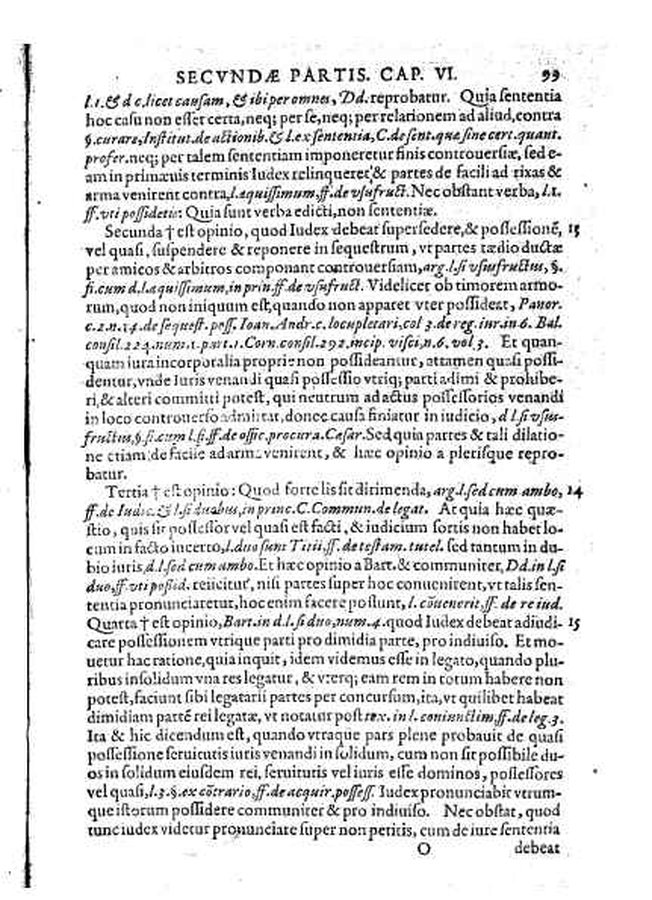 SECVNDÆ PARTIS. CAP. VI. 99
l.1.& d c.licet causam, & ibi per omnes, Dd. reprobatur. Quia sententia
hoc casu non esset certa, neq; per se, neq; per relationem ad aliud, contra
§.curare, Institut.de actionib.& l.ex sententia, C.de sent.quæ sine cert.quant.
profer. neq; per talem sententiam imponeretur finis controuersiæ, sed e-
am in primæuis terminis Iudex relinqueret, & partes de facili ad rixas &
arma venirent contra, l.æquissimum, ff.de vsufruct. Nec obstant verba, l.1.
ff.vti possidetis: Quia sunt verba edicti, non sententiæ.
Secunda † est opinio, quod Iudex debeat supersedere, & possessionē, 15
vel quasi, suspendere & reponere in sequestrum, vt partes tædio ductæ
per amicos & arbitros componant controuersiam, arg.l.si vsusfructus, §.
si.cum d.l.æquissimum, in prin.ff.de vsufruct. Videlicet ob timorem armo-
rum, quod non iniquum est, quando non apparet vter possideat, Panor.
c.2.n.14.de sequest.poss. Ioan.Andr.c.locupletari, col 3.de reg.iur.in 6. Bal.
consil.224.num.1.part.1. Corn.consil.292.incip.visci, n.6.vol 3. Et quan-
quam iura incorporalia proprie non possideantur, attamen quasi possi-
dentur, vnde Iuris venandi quasi possessio vtriq; parti adimi & prohibe-
ri, & alteri committi potest, qui neutrum ad actus possessorios venandi
in loco controuerso admittat, donec causa finiatur in iudicio, d l.si vsus-
fructus, §.si.cum l.si.ff.de offic.procura.Cæsar. Sed quia partes & tali dilatio-
ne etiam de facile ad arma venirent, & hæc opinio a plerisque repro-
batur.
Tertia † est opinio: Quod forte lis sit dirimenda, arg.l.sed cum ambo, 14
ff.de Iudic. & l.si duobus, in princ.C.Commun.de legat. At quia hæc quæ-
stio, quis sit possessor vel quasi est facti, & iudicium sortis non habet lo-
cum in facto incerto, l.duo sunt Titii, ff.de testam.tutel. sed tantum in du-
bio iuris, d.l.sed cum ambo. Et hæc opinio a Bart. & communiter, Dd.in l.si
duo, ff.vti possid. reiicitur, nisi partes super hoc conuenirent, vt talis sen-
tentia pronunciaretur, hoc enim facere possunt, l. cōuenerit, ff. de re iud.
Quarta † est opinio, Bart.in d.l.si duo, num.4. quod Iudex debeat adiudi- 15
care possessionem vtrique parti pro dimidia parte, pro indiuiso. Et mo-
uetur hac ratione, quia inquit, idem videmus esse in legato, quando plu-
ribus insolidum vna res legatur, & vterq; eam rem in totum habere non
potest, faciunt sibi legatarii partes per concursum, ita, vt quilibet habeat
dimidiam partē rei legatæ, vt notatur post tex. in l.coniunctim, ff.de leg.3.
Ita & hic dicendum est, quando vtraque pars plene probauit de quasi
possessione seruitutis iuris venandi in solidum, cum non sit possibile du-
os in solidum eiusdem rei, seruitutis vel iuris esse dominos, possessores
vel quasi, l.3.§.ex cōtrario, ff.de acquir.possess. Iudex pronunciabit vtrum-
que istorum possidere communiter & pro indiuiso. Nec obstat, quod
tunc iudex videtur pronunciare super non petitis, cum de iure sententia
O debeat